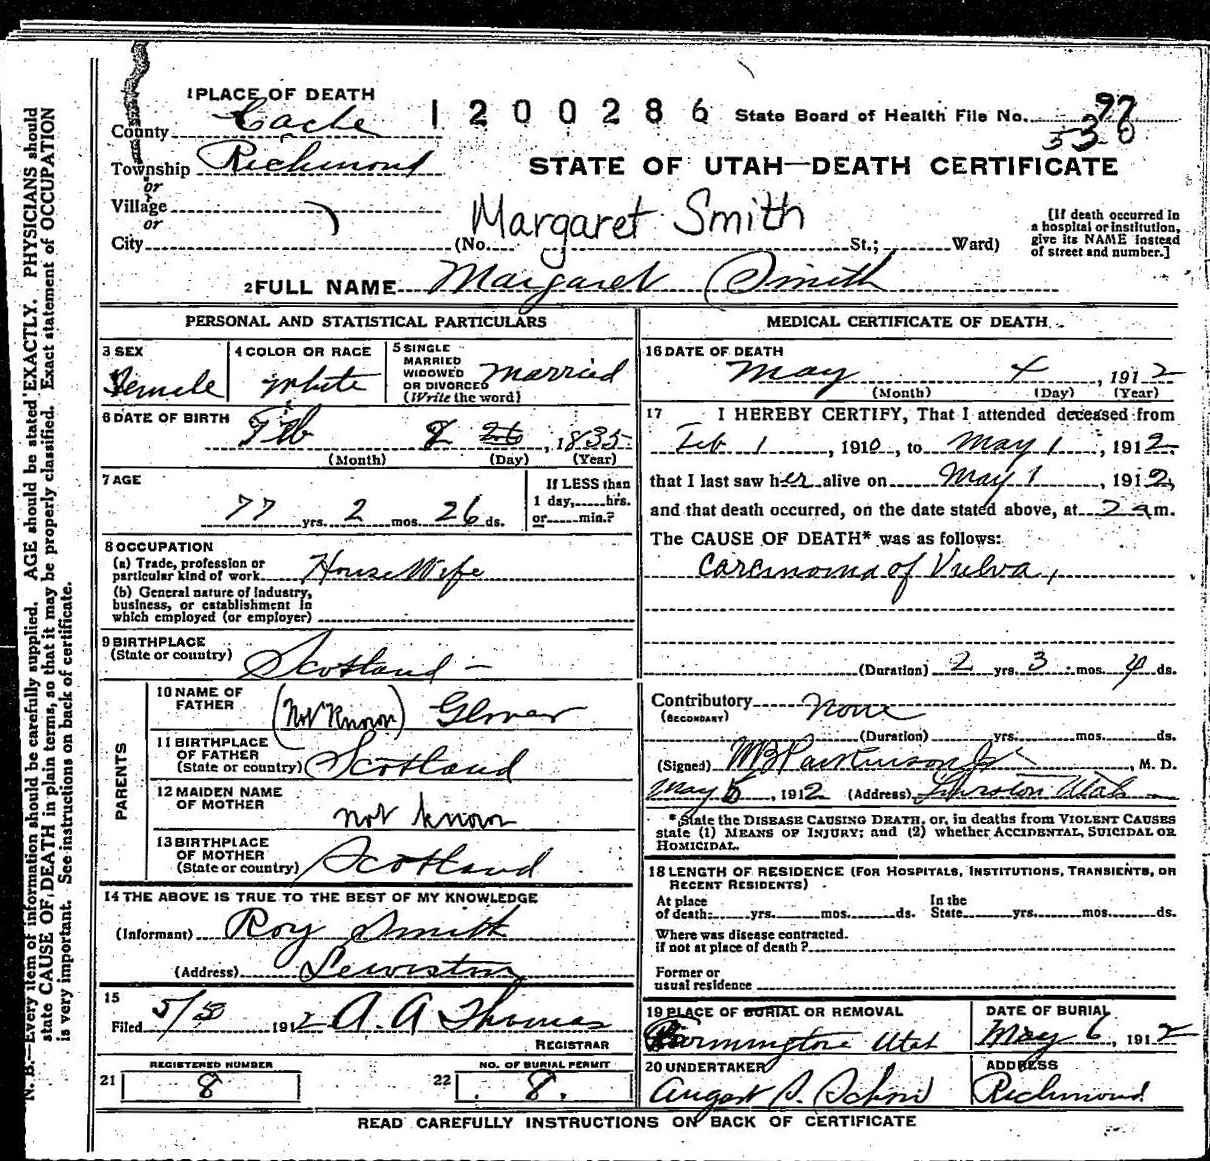 1 PLACE OF DEATH
County Cache
1200286
State Board of Health File No. 97
530
Township Richmond
STATE OF UTAH—DEATH CERTIFICATE
or
Village
or
Margaret Smith
City (No. St.; Ward)
[If death occurred in
a hospital or institution,
give its NAME instead
of street and number.]
2 FULL NAME Margaret Smith
PERSONAL AND STATISTICAL PARTICULARS
3 SEX
Female
4 COLOR OR RACE
White
5 SINGLE
MARRIED
WIDOWED
OR DIVORCED
(Write the word)
Married
6 DATE OF BIRTH
Feb 8 26, 1835
(Month) (Day) (Year)
7 AGE
77 yrs. 2 mos. 26 ds.
If LESS than
1 day, hrs.
or min.?
8 OCCUPATION
(a) Trade, profession or
particular kind of work House Wife
(b) General nature of industry,
business, or establishment in
which employed (or employer)
9 BIRTHPLACE
(State or country) Scotland —
PARENTS
10 NAME OF
FATHER (Not Known) Glover
11 BIRTHPLACE
OF FATHER
(State or country) Scotland
12 MAIDEN NAME
OF MOTHER
not known
13 BIRTHPLACE
OF MOTHER
(State or country) Scotland
14 THE ABOVE IS TRUE TO THE BEST OF MY KNOWLEDGE
(Informant) Roy Smith
(Address) Lewiston
15
Filed 5/5 1912 A. A Thomas
REGISTRAR
REGISTERED NUMBER
21 8
NO. OF BURIAL PERMIT
22 8.
MEDICAL CERTIFICATE OF DEATH
16 DATE OF DEATH
May 4, 1912
(Month) (Day) (Year)
17 I HEREBY CERTIFY, That I attended deceased from
Feb 1, 1910, to May 1, 1912
that I last saw her alive on May 1, 1912,
and that death occurred, on the date stated above, at 2 a m.
The CAUSE OF DEATH* was as follows:
Carcinoma of Vulva,
(Duration) 2 yrs. 3 mos. 4 ds.
Contributory none
(SECONDARY)
(Duration) yrs. mos. ds.
(Signed) W B Parkinson Jr, M. D.
May 5, 1912 (Address) Utah
*State the DISEASE CAUSING DEATH, or, in deaths from VIOLENT CAUSES
state (1) MEANS OF INJURY; and (2) whether ACCIDENTAL, SUICIDAL OR
HOMICIDAL.
18 LENGTH OF RESIDENCE (FOR HOSPITALS, INSTITUTIONS, TRANSIENTS, OR
RECENT RESIDENTS)
At place
of death: yrs. mos. ds.
In the
State yrs. mos. ds.
Where was disease contracted.
if not at place of death?
Former or
usual residence
19 PLACE OF BURIAL OR REMOVAL
Farmington Utah
DATE OF BURIAL
May 6, 1912
20 UNDERTAKER
August S. Schow
ADDRESS
Richmond
READ CAREFULLY INSTRUCTIONS ON BACK OF CERTIFICATE
N. B.—Every item of information should be carefully supplied. AGE should be stated EXACTLY. PHYSICIANS should
state CAUSE OF DEATH in plain terms, so that it may be properly classified. Exact statement of OCCUPATION
is very important. See instructions on back of certificate.